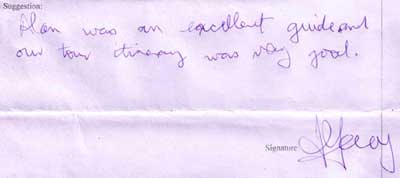 Suggestion:
Alan was an excellent guide and
our tour itinerary was very good.
Signature